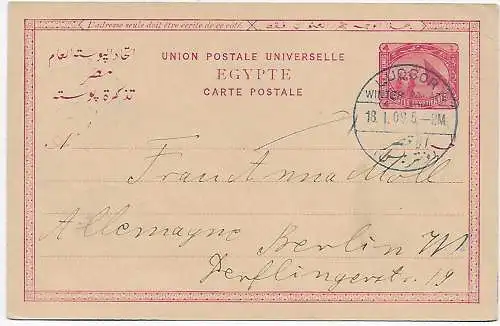 L'adresse seule doit être écrite de ce côté.
اتحاد البوستة العام
مصر
تذكرة بوستة
UNION POSTALE UNIVERSELLE
EGYPTE
CARTE POSTALE
LUQSOR
WINTER
18.I.09.5-PM
N.
Frau Anna Moll
Allemagne Berlin W
Derflingerstr. 19